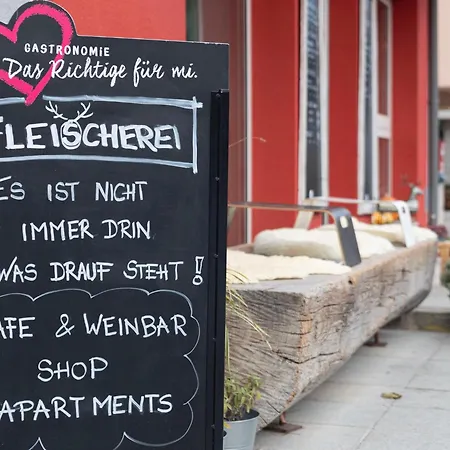 GASTRONOMiE
Das Richtige für mi.
FLEISCHEREI
ES IST NICHT
IMMER DRIN
WAS DRAUF STEHT!
AFE & WEINBAR
SHOP
APARTMENTS